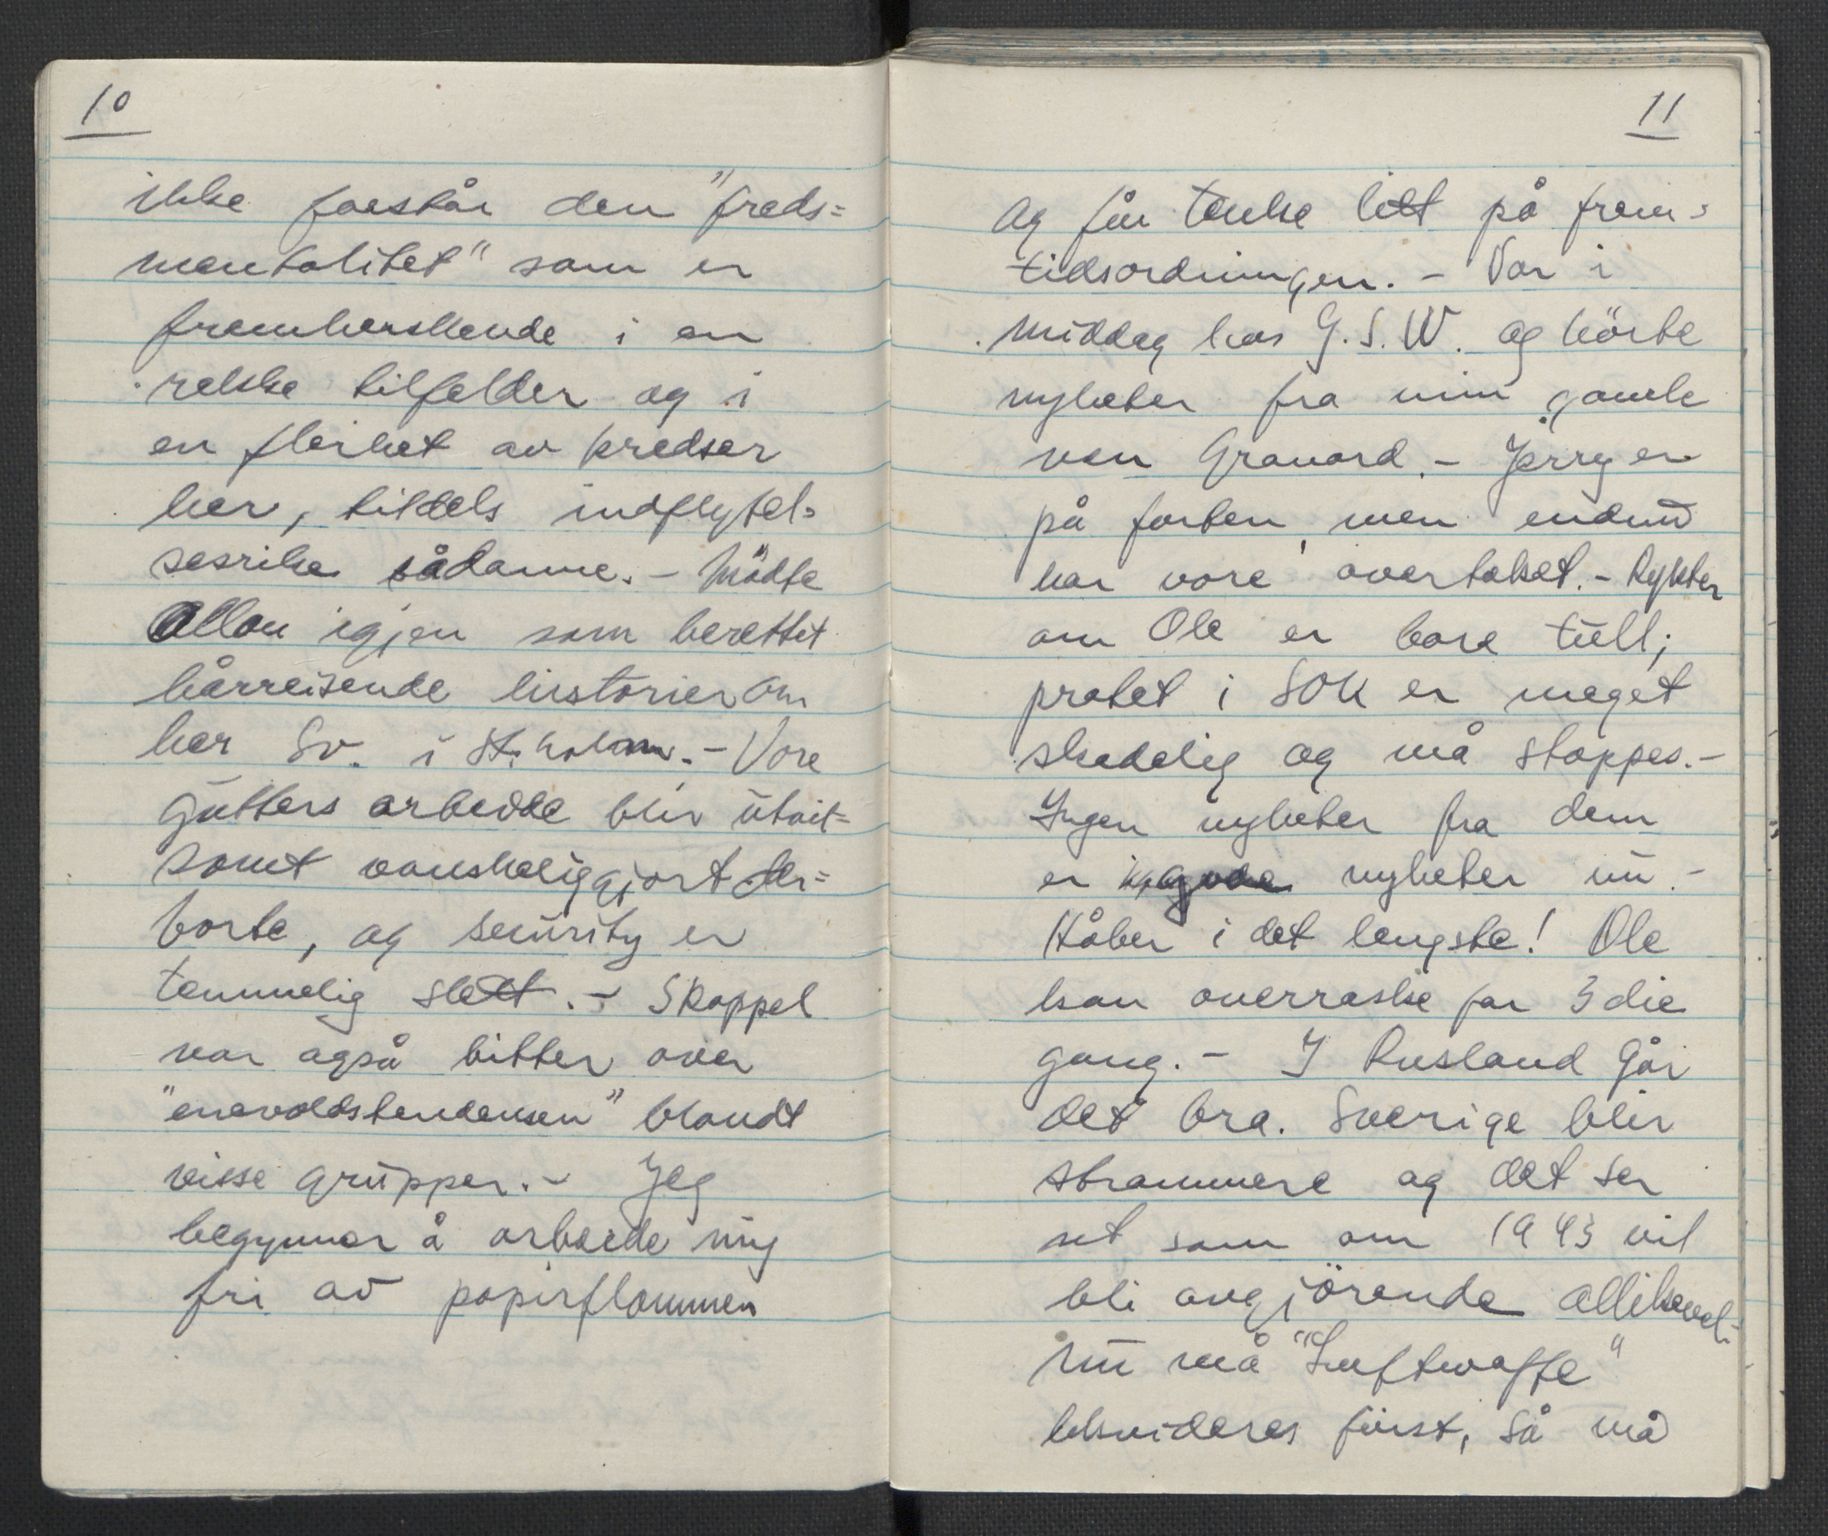 10
ikke forstår den "freds=
mentalitet" som er
fremherskende i en
rekke tilfelder og i
en flerhet av kredser
her, tildels indflytel=
sesrike sådanne. - Mödte
Allan igjen som berettet
hårreisende historier om
her Sv. i St.holm. - Vore
gutters arbeide blir utvit=
somt vanskeliggjort der=
borte, og security er
temmelig slett. - Skappel
var også bitter over
"enevoldstendensen" blandt
visse grupper. - Jeg
begynner å arbeide mig
fri av papirflommen
11
og får tenke litt på frem=
tidsordningen. - Var i
middag hos G.S.W. og hörte
nyheter fra min gamle
ven Granard. - Jerry er
på farten, men endnu
har vore overtaket. - Rykter
om Ole er bare tull;
pratet i SOK er meget
skadelig og må stoppes. -
Ingen nyheter fra dem
er gode nyheter nu. -
Håber i det lengste! Ole
kan overraske for 3die
gang. - I Rusland går
det bra. Sverige blir
strammere og det ser
ut som om 1943 vil
bli avgjörende allikevel.-
Nu må "Luftwaffe"
likvideres först, så må